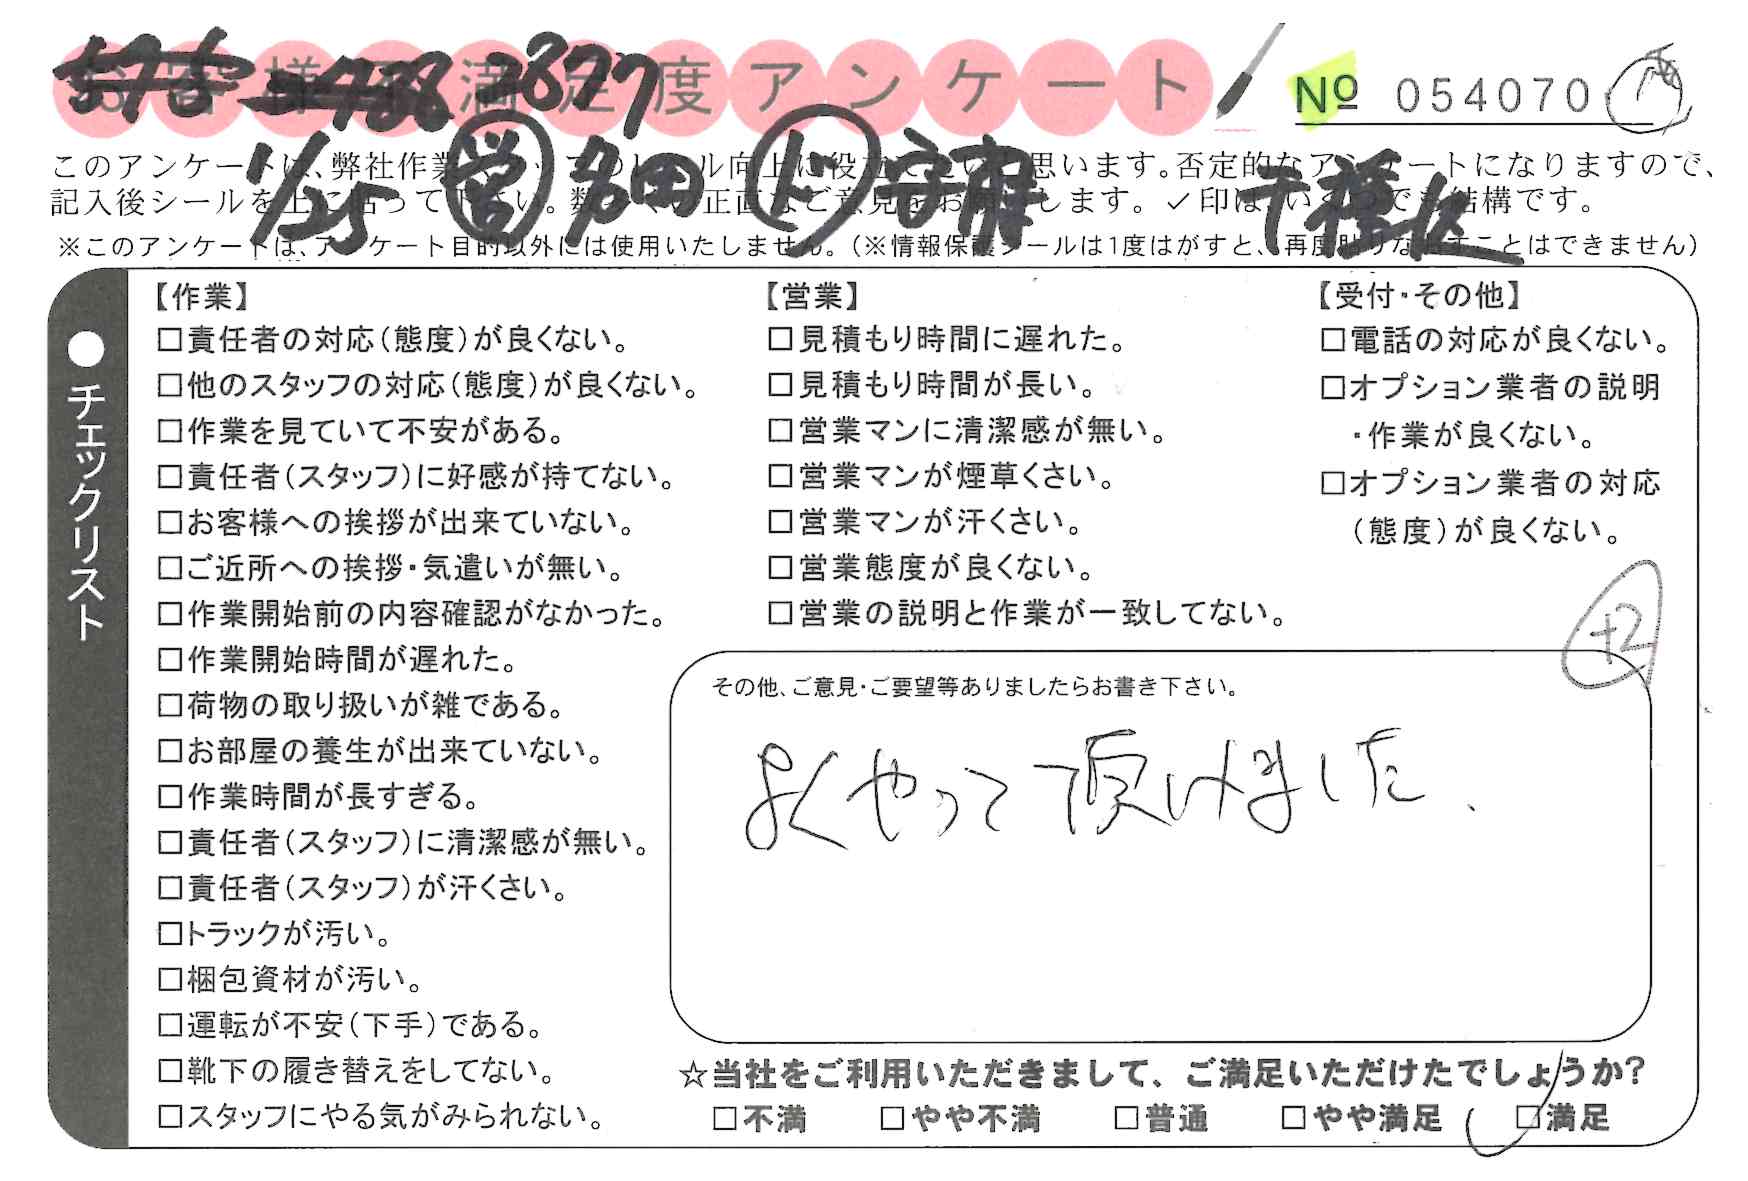 お客様不満足度アンケート
3877
No 054070
1/25 営 多田 ド 守雅 千種区
このアンケートは、弊社作業スタッフのレベル向上に役立てたいと思います。否定的なアンケートになりますので、
記入後シールを上に貼って下さい。数多くの正直なご意見をお願いします。✓印はいくつでも結構です。
※このアンケートは、アンケート目的以外には使用いたしません。(※情報保護シールは1度はがすと、再度貼りなおすことはできません)
●チェックリスト
【作業】
□責任者の対応(態度)が良くない。
□他のスタッフの対応(態度)が良くない。
□作業を見ていて不安がある。
□責任者(スタッフ)に好感が持てない。
□お客様への挨拶が出来ていない。
□ご近所への挨拶・気遣いが無い。
□作業開始前の内容確認がなかった。
□作業開始時間が遅れた。
□荷物の取り扱いが雑である。
□お部屋の養生が出来ていない。
□作業時間が長すぎる。
□責任者(スタッフ)に清潔感が無い。
□責任者(スタッフ)が汗くさい。
□トラックが汚い。
□梱包資材が汚い。
□運転が不安(下手)である。
□靴下の履き替えをしてない。
□スタッフにやる気がみられない。
【営業】
□見積もり時間に遅れた。
□見積もり時間が長い。
□営業マンに清潔感が無い。
□営業マンが煙草くさい。
□営業マンが汗くさい。
□営業態度が良くない。
□営業の説明と作業が一致してない。
【受付・その他】
□電話の対応が良くない。
□オプション業者の説明
・作業が良くない。
□オプション業者の対応
(態度)が良くない。
+2
その他、ご意見・ご要望等ありましたらお書き下さい。
よくやって頂けました.
☆当社をご利用いただきまして、ご満足いただけたでしょうか?
□不満 □やや不満 □普通 □やや満足 □満足